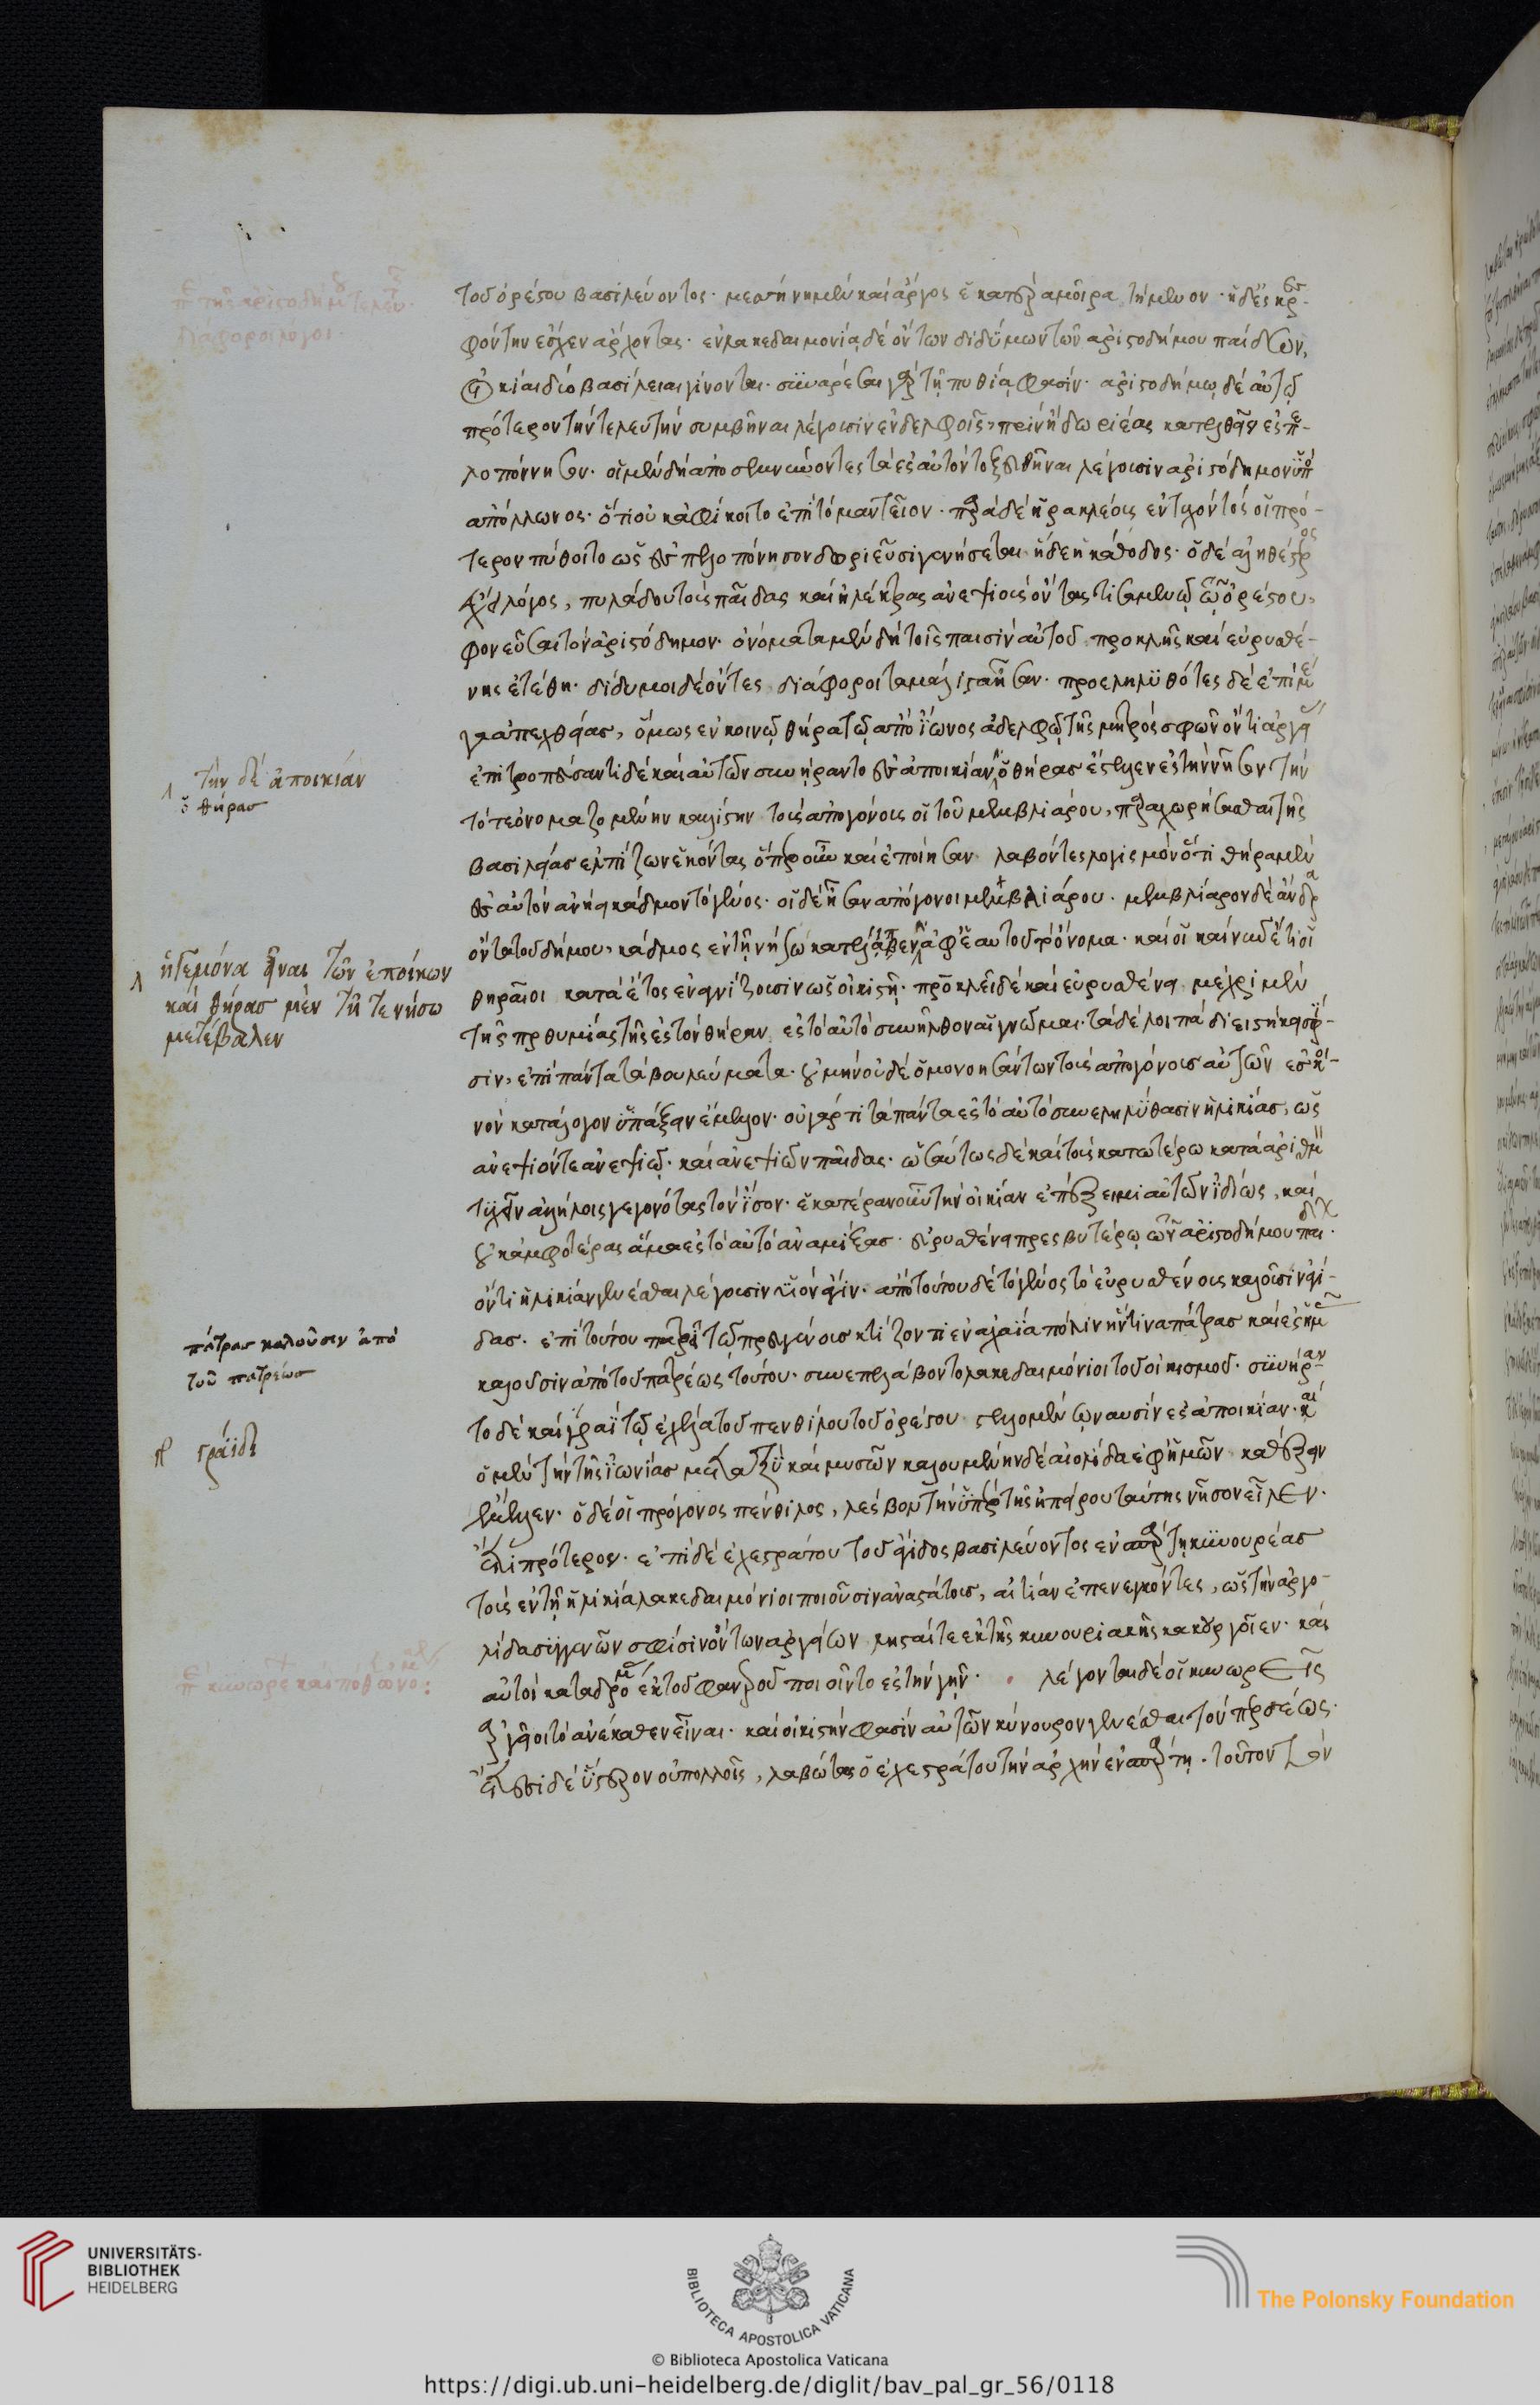 τοῦ ὀρέστου βασιλεύοντος. μεσήνη μὲν καὶ ἄργος ἑκατέρα μοῖρα τήμενον. ἡ δὲ κρες-
φόντην ἔσχεν ἄρχοντας. ἐν λακεδαιμονία δὲ ὄντων διδύμων τῶν ἀριστοδήμου παίδων,
οἰκίαι δύο βασίλειαι γίνονται. συναρέσαι γὰρ τῇ πυθίᾳ φασίν. ἀριστοδήμῳ δὲ αὐτῷ
πρότερον τὴν τελευτὴν συμβῆναι λέγουσιν ἐν δελφοῖς, πρὶν ἢ δωριέας κατελθεῖν ἐς πε-
λοπόννησον. οἱ μὲν δὴ ἀποσεμνύνοντες τὰ ἐς αὐτὸν τοξευθῆναι λέγουσιν ἀριστόδημον ὑπὸ
ἀπόλλωνος. ὅτι οὐκ ἀφίκοιτο ἐπὶ τὸ μαντεῖον. παρὰ δὲ ἡρακλέους ἐντυχόντος οἱ πρό-
τερον πύθοιτο ὡς ἐς πελοπόνησον δωριεῦσι γενήσεται ἥδε ἡ κάθοδος. ὁ δὲ ἀληθέστερος
ἔχει λόγος, πυλάδου τοὺς παῖδας καὶ ἠλέκτρας ἀνεψιοὺς ὄντας τισαμενῷ τῷ ὀρέστου,
φονεῦσαι τὸν ἀριστόδημον. ὀνόματα μὲν δὴ τοῖς παισὶν αὐτοῦ προκλῆς καὶ εὐρυσθέ-
νης ἐτέθη. δίδυμοι δὲ ὄντες διάφοροι τὰ μάλιστα ἦσαν. προεληλυθότες δὲ ἐπὶ μέ-
γα ἀπεχθείας, ὅμως ἐν κοινῷ θήρα τῷ αὐτεσίωνος ἀδελφῷ τῆς μητρὸς σφῶν ὄντι ἀργείας
ἐπιτροπεύσαντι δὲ καὶ αὐτῶν συνήραντο ἐς ἀποικίαν ὁ θήρας ἔστελλεν ἐς τὴν νῆσον τὴν
τότε ὀνομαζομένην καλίστην τοὺς ἀπογόνους οἱ τοῦ μεμβλιάρου, παραχωρήσασθαι τῆς
βασιλείας ἐλπίζων ἑκόντας ὅπερ οὖν καὶ ἐποίησαν λαβόντες λογισμὸν ὅτι θήρα μὲν
ἐς αὐτὸν ἀνήει κάδμον τὸ γένος. οἱ δὲ ἦσαν ἀπόγονοι μεμβλιάρου. μεμβλίαρον δὲ ἄνδρα
ὄντα τοῦ δήμου, κάδμος ἐν τῇ νήσῳ κατέλιπεν ἀφ' ἑαυτοῦ τὸ ὄνομα. καὶ οἱ καὶ νῦν ἔτι οἱ
θηραῖοι κατὰ ἔτος ἐναγίζουσιν ὡς οἰκιστῇ. προκλεῖ δὲ καὶ εὐρυσθένει μέχρι μὲν
τῆς προθυμίας τῆς ἐς τὸν θήραν ἐς τὸ αὐτὸ συνῆλθον αἱ γνῶμαι. τὰ δὲ λοιπὰ διειστήκει σφί-
σιν, ἐπὶ πάντα τὰ βουλεύματα. οὐ μὴν οὐδὲ ὁμονοησάντων τοὺς ἀπογόνους αὐτῶν ἐς κοι-
νὸν κατάλογον ὑπάξειν ἔμελλον. οὐ γάρ τι τὰ πάντα ἐς τὸ αὐτὸ συνεληλύθασιν ἡλικίας, ὡς
ἀνεψιόν τε ἀνεψιῷ. καὶ ἀνεψιῶν παῖδας. ὡσαύτως δὲ καὶ τοὺς κατωτέρω κατὰ ἀριθμὸν
τυχεῖν ἀλλήλοις γεγονότας τὸν ἴσον. ἑκατέραν οὖν τὴν οἰκίαν ἐπέξειμι αὐτῶν ἰδίως, καὶ
οὐκ ἀμφοτέρας ἅμα ἐς τὸ αὐτὸ ἀναμίξας. εὐρυσθένει πρεσβυτέρῳ τῶν ἀριστοδήμου παίδων
ὄντι ἡλικίαν γενέσθαι λέγουσιν υἱὸν ἆγιν. ἀπὸ τούτου δὲ τὸ γένος τὸ εὐρυσθένους καλοῦσιν ἀγί-
δας. ἐπὶ τούτου πατρεῖ τῷ πρευγένους κτίζοντι ἐν ἀχαΐα πόλιν ἥντινα πάτρας καὶ ἐς ἡμᾶς
καλοῦσιν ἀπὸ τοῦ πατρέως τούτου. συνεπελάβοντο λακεδαιμόνιοι τοῦ οἰκισμοῦ. συνήραν-
το δὲ καὶ γραῒ τῷ ἐχελάτου πενθίλου τοῦ ὀρέστου στελλομένῳ ναυσὶν ἐς ἀποικίαν. καὶ
ὁ μὲν τὴν τῆς ἰωνίας μεταξὺ καὶ μυσῶν καλουμένην δὲ αἰολίδα ἐφ' ἡμῶν καθέξειν
ἔμελλεν. ὁ δέ οἱ πρόγονος πένθιλος, λέσβον τὴν ὑπὲρ τῆς ἠπείρου ταύτης νῆσον εἷλεν
ἔτι πρότερον. ἐπὶ δὲ ἐχεστράτου τοῦ ἄγιδος βασιλεύοντος ἐν σπάρτῃ κυνουρέας
τοὺς ἐν τῇ ἡλικίᾳ λακεδαιμόνιοι ποιοῦσιν ἀναστάτους, αἰτίαν ἐπενεγκόντες, ὡς τὴν ἀργο-
λίδα συγγενῶν σφίσιν ὄντων ἀργείων λῃσταί τε ἐκ τῆς κυνουριακῆς κακουργοῖεν. καὶ
αὐτοὶ καταδρομὰς ἐκ τοῦ φανεροῦ ποιοῖντο ἐς τὴν γῆν. λέγονται δὲ οἱ κυνωρεῖς
ἀργεῖοι τὸ ἀνέκαθεν εἶναι. καὶ οἰκιστήν φασιν αὐτῶν κύνουρον γενέσθαι τὸν περσέως.
ἔτεσι δὲ ὕστερον οὐ πολλοῖς, λαβώτας ὁ ἐχεστράτου τὴν ἀρχὴν ἐν σπάρτῃ. τοῦτον τὸν
περὶ τῆς ἀριστοδήμου τελευτῆς
διάφοροι λόγοι.
τὴν δὲ ἀποικίαν
ὁ θήρας
ἡγεμόνα εἶναι τῶν ἐποίκων
καὶ θήρας μὲν τῇ τε νήσω
μετέβαλεν
πάτρας καλοῦσιν ἀπὸ
τοῦ πατρέως
UNIVERSITÄTS-
BIBLIOTHEK
HEIDELBERG
BIBLIOTECA APOSTOLICA VATICANA
The Polonsky Foundation
© Biblioteca Apostolica Vaticana
https://digi.ub.uni-heidelberg.de/diglit/bav_pal_gr_56/0118